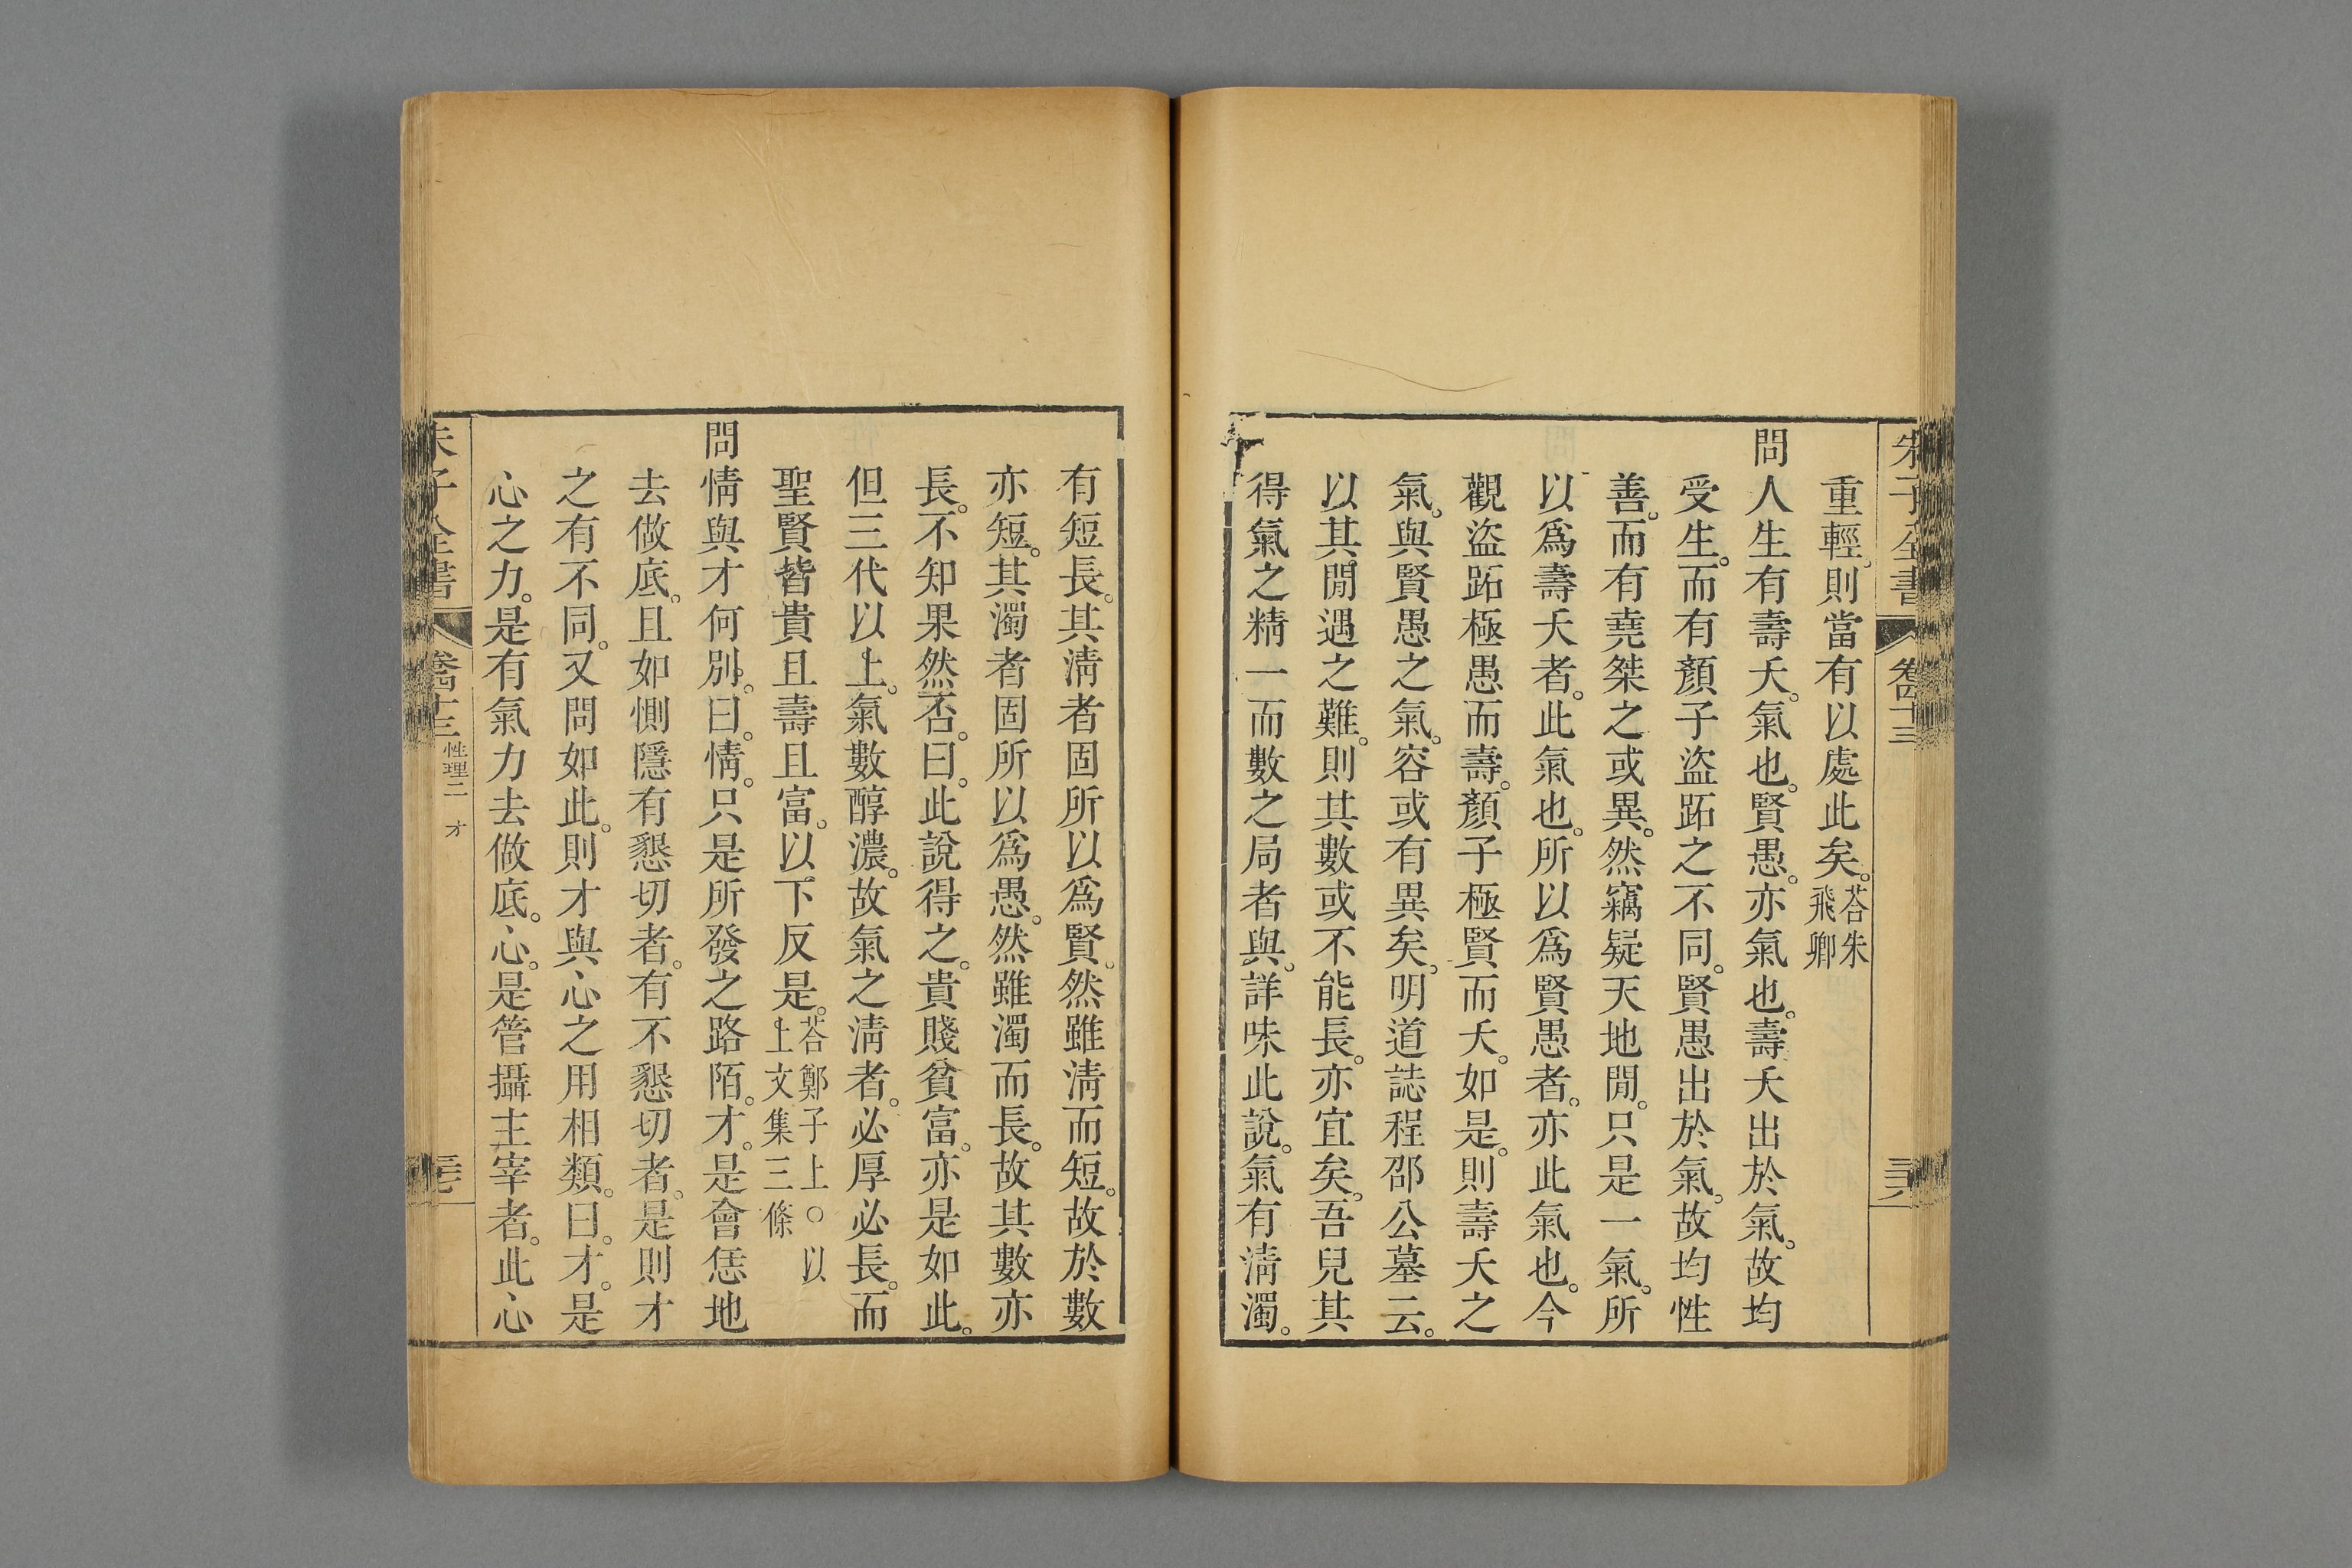 朱子全書 卷四十三
重輕。則當有以處此矣。荅朱飛卿
問人生有壽夭。氣也。賢愚。亦氣也。壽夭出於氣。故均
受生。而有顏子盜跖之不同。賢愚出於氣。故均性
善。而有堯桀之或異。然竊疑天地閒。只是一氣。所
以爲壽夭者。此氣也。所以爲賢愚者。亦此氣也。今
觀盜跖極愚而壽。顏子極賢而夭。如是。則壽夭之
氣。與賢愚之氣。容或有異矣。明道誌程邵公墓云。
以其閒遇之難。則其數或不能長。亦宜矣。吾兒其
得氣之精一而數之局者與。詳味此說。氣有淸濁。
有短長。其淸者固所以爲賢。然雖淸而短。故於數
亦短。其濁者固所以爲愚。然雖濁而長。故其數亦
長。不知果然否。曰。此說得之。貴賤貧富。亦是如此。
但三代以上。氣數醇濃。故氣之淸者。必厚必長。而
聖賢皆貴且壽且富。以下反是。荅鄭子上○以上文集三條
問情與才何別。曰。情。只是所發之路陌。才。是會恁地
去做底。且如惻隱有懇切者。有不懇切者。是則才
之有不同。又問如此。則才與心之用相類。曰。才。是
心之力。是有氣力去做底。心。是管攝主宰者。此心
朱子全書 卷四十三 性理二 才